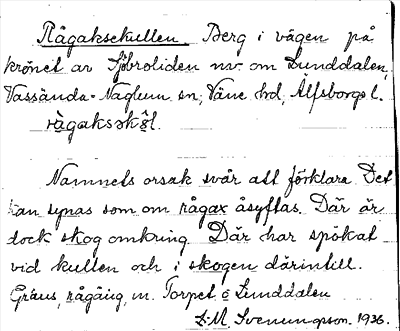 Rågaksekullen. Berg i vägen på
krönet av Sjöbroliden nv. om Lunddalen,
Vassända-Naglum sn, Väne hd, Älfsborgs l.
Namnets orsak svår att förklara Det
kan synas som om rågax åsyftas. Där är
dock skog omkring Där har spökat
vid kullen och i skogen därintill.
Gräns, rågång, m. Torpet o Lunddalen
Svenungsson. 1936.